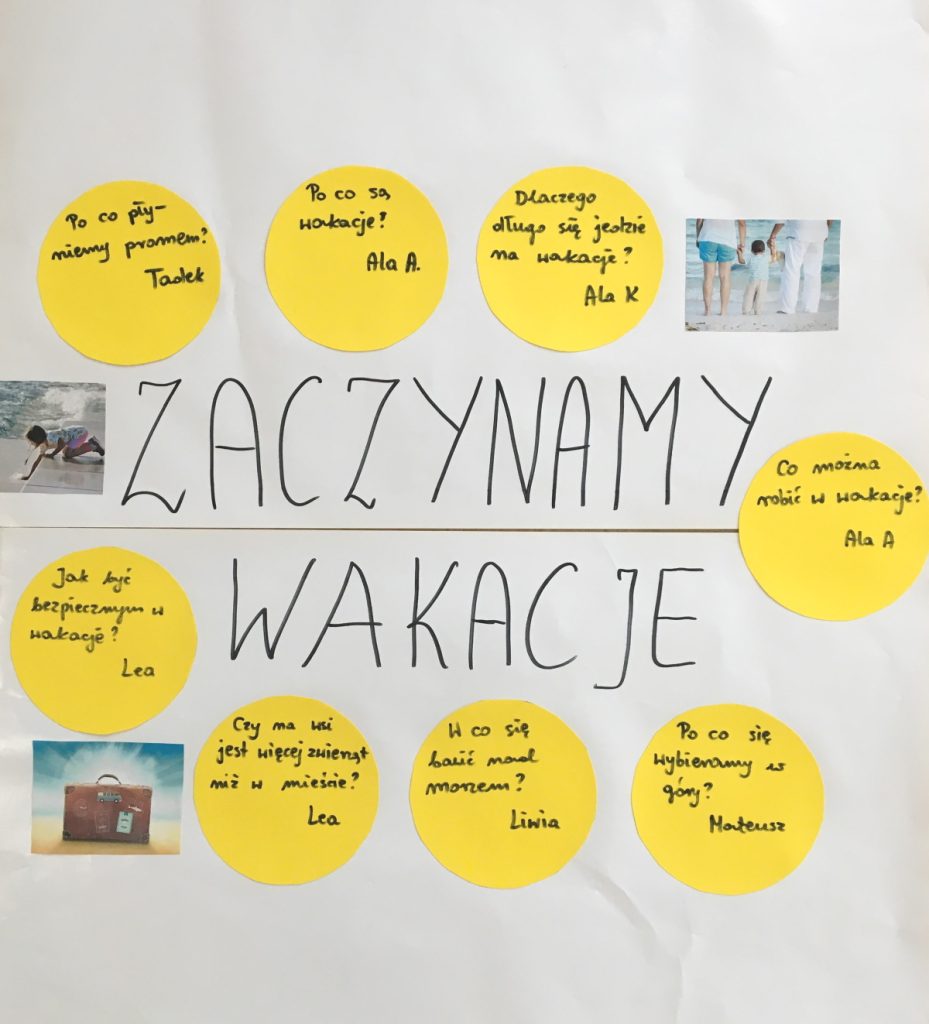 Po co pły-
niemy promem?
Tadek
Po co są
wakacje?
Ala A.
Dlaczego
długo się jedzie
na wakacje?
Ala K
ZACZYNAMY
Co można
robić w wakacje?
Ala A
WAKACJE
Jak być
bezpiecznym w
wakacje?
Lea
Czy na wsi
jest więcej zwierząt
niż w mieście?
Lea
W co się
bawić nad
morzem?
Liwia
Po co się
wybieramy w
góry?
Mateusz